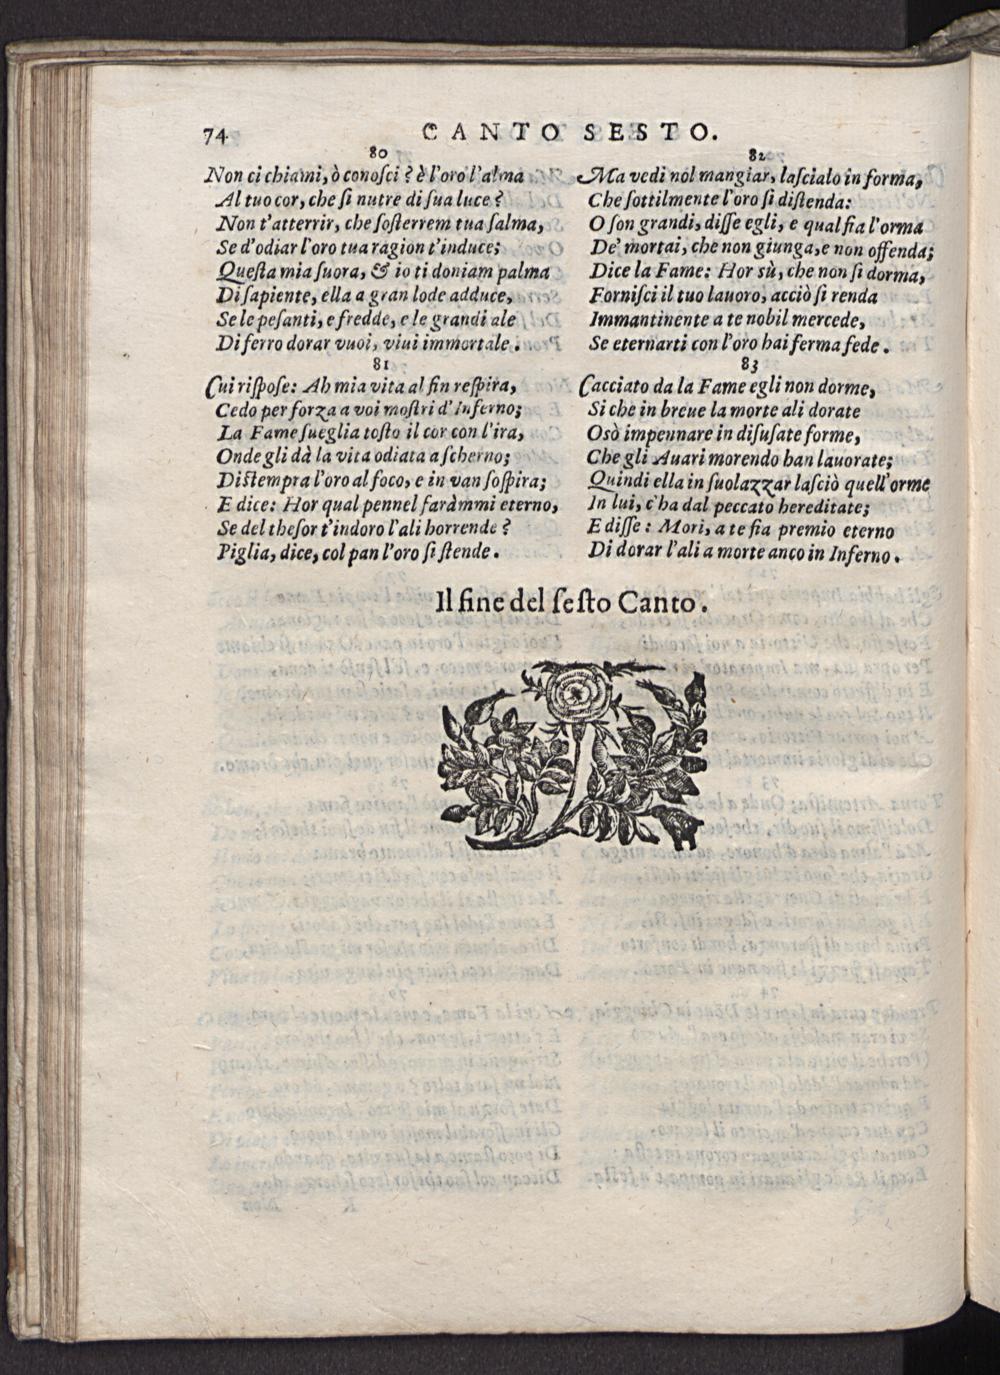 74
CANTO SESTO.
80
Non ci chiami, ò conoſci? è l'oro l'alma
Al tuo cor, che ſi nutre di ſua luce?
Non t'atterrir, che ſoſterrem tua ſalma,
Se d'odiar l'oro tua ragion t'induce;
Queſta mia ſuora, & io ti doniam palma
Di ſapiente, ella a gran lode adduce,
Se le peſanti, e fredde, e le grandi ale
Di ferro dorar vuoi, viui immortale.
81
Cui riſpoſe: Ah mia vita al fin reſpira,
Cedo per forza a voi moſtri d'Inferno;
La Fame ſueglia toſto il cor con l'ira,
Onde gli dà la vita odiata a ſcherno;
Diſtempra l'oro al foco, e in van ſoſpira;
E dice: Hor qual pennel faràmmi eterno,
Se del theſor t'indoro l'ali horrende?
Piglia, dice, col pan l'oro ſi ſtende.
82
Ma vedi nól mangiar, laſcialo in forma,
Che ſottilmente l'oro ſi diſtenda:
O ſon grandi, diſſe egli, e qual fia l'orma
De' mortai, che non giunga, e non offenda;
Dice la Fame: Hor sù, che non ſi dorma,
Forniſci il tuo lauoro, acciò ſi renda
Immantinente a te nobil mercede,
Se eternarti con l'oro hai ferma fede.
83
Cacciato da la Fame egli non dorme,
Si che in breue la morte ali dorate
Osò impennare in diſuſate forme,
Che gli Auari morendo han lauorate;
Quindi ella in ſuolazzar laſciò quell'orme
In lui, c'ha dal peccato hereditate;
E diſſe: Mori, a te fia premio eterno
Di dorar l'ali a morte anco in Inferno.
Il fine del ſeſto Canto.